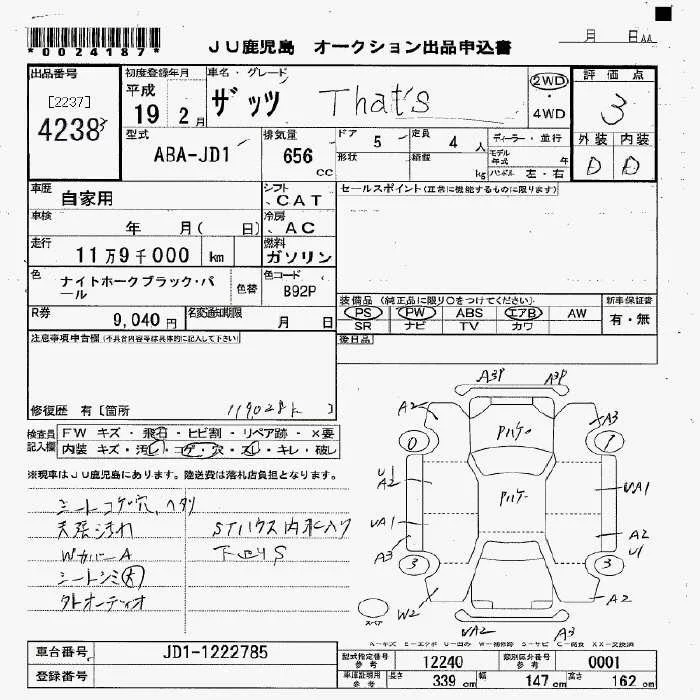 *0024187*
JU鹿児島 オークション出品申込書
月 日
出品番号
[2237]
4238
初度登録年月
平成
19 2月
車名・グレード
ザッツ That's
2WD
・
4WD
評価点
3
外装 内装
D D
型式
ABA-JD1
排気量
656
cc
ドア 5
定員 4 人
形状
積載 kg
ディーラー・並行
モデル年式 年
ハンドル 左・右
車歴
自家用
シフト
CAT
セールスポイント(正常に機能するものに限ります)
車検
年 月( 日)
冷房
AC
走行
11万9千000 km
燃料
ガソリン
色
ナイトホークブラック・パール
色替
色コード
B92P
R券
9,040円
名変通知期限
月 日
装備品(純正品に限り○をつけてください)
PS PW ABS エアB AW
SR ナビ TV カワ
新車保証書
有・無
後日品
注意事項申告欄(不具合内容等は具体的に記入して下さい)
修復歴 有[箇所 ]
119028k
検査員記入欄
FW キズ・飛石・ヒビ割・リペア跡・×要
内装 キズ・汚れ・コゲ・穴・スレ・キレ・破レ
※現車はJU鹿児島にあります。陸送費は落札店負担となります。
シートコゲ穴、ヘタリ
天張汚れ STハウス内水入り
WカバーA 下回りS
シートシミ大
外オーディオ
A3P A3P
A2 A3
0 1
Pハケ
U1
A2
Pハケ
UA1
UA1
A2
U1
A3
3 3
W2 A2
UA2 A3
スペア
A-キズ E-エクボ U-凹み W-補修跡 S-サビ C-腐食 XX-交換済
車台番号
JD1-1222785
登録番号
型式指定番号
参考
12240
類別区分番号
参考
0001
車庫証明用
参考
長さ 339 cm 幅 147 cm 高さ 162 cm